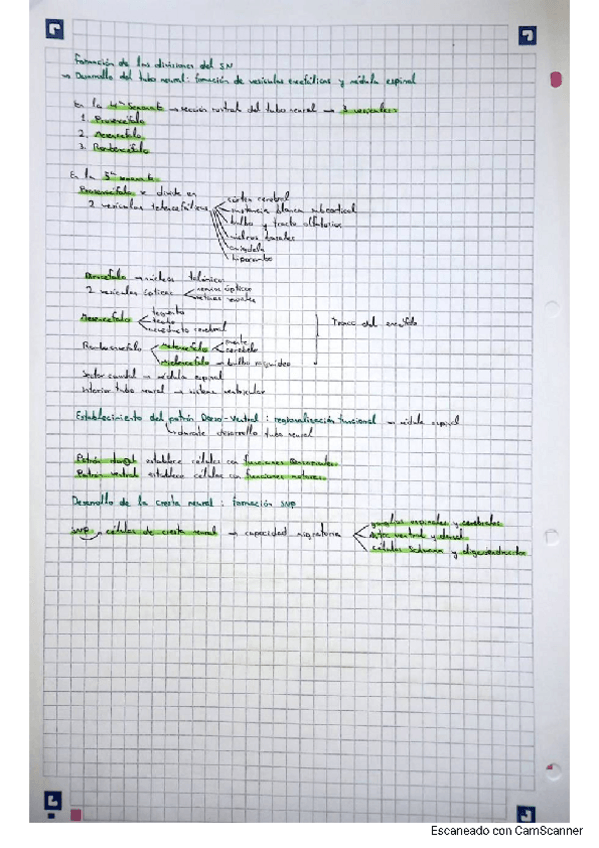 Formación de las divisiones del SN
→ Desarrollo del tubo neural: formación de vesículas encefálicas y médula espinal
En la 4ª semana → sección rostral del tubo neural → 3 vesículas
1. Prosencéfalo
2. Mesencéfalo
3. Rombencéfalo
En la 5ª semana
Prosencéfalo se divide en
2 vesículas telencefálicas
córtex cerebral
sustancia blanca subcortical
bulbo y tracto olfatorios
núcleos basales
amígdala
hipocampo
Diencéfalo → núcleos talámicos
2 vesículas ópticas
nervios ópticos
retinas neurales
Mesencéfalo
tegmento
tectum
acueducto cerebral
Tronco del encéfalo
Rombencéfalo
Metencéfalo
puente
cerebelo
Mielencéfalo → bulbo raquídeo
Sector caudal → médula espinal
Interior tubo neural → sistema ventricular
Establecimiento del patrón Dorso-Ventral: regionalización funcional → médula espinal
durante desarrollo tubo neural
Patrón dorsal establece células con funciones sensoriales
Patrón ventral establece células con funciones motoras
Desarrollo de la cresta neural: formación SNP
SNP → células de cresta neural → capacidad migratoria
ganglios espinales y cerebrales
ventral y dorsal
células Schwann y
Escaneado con CamScanner